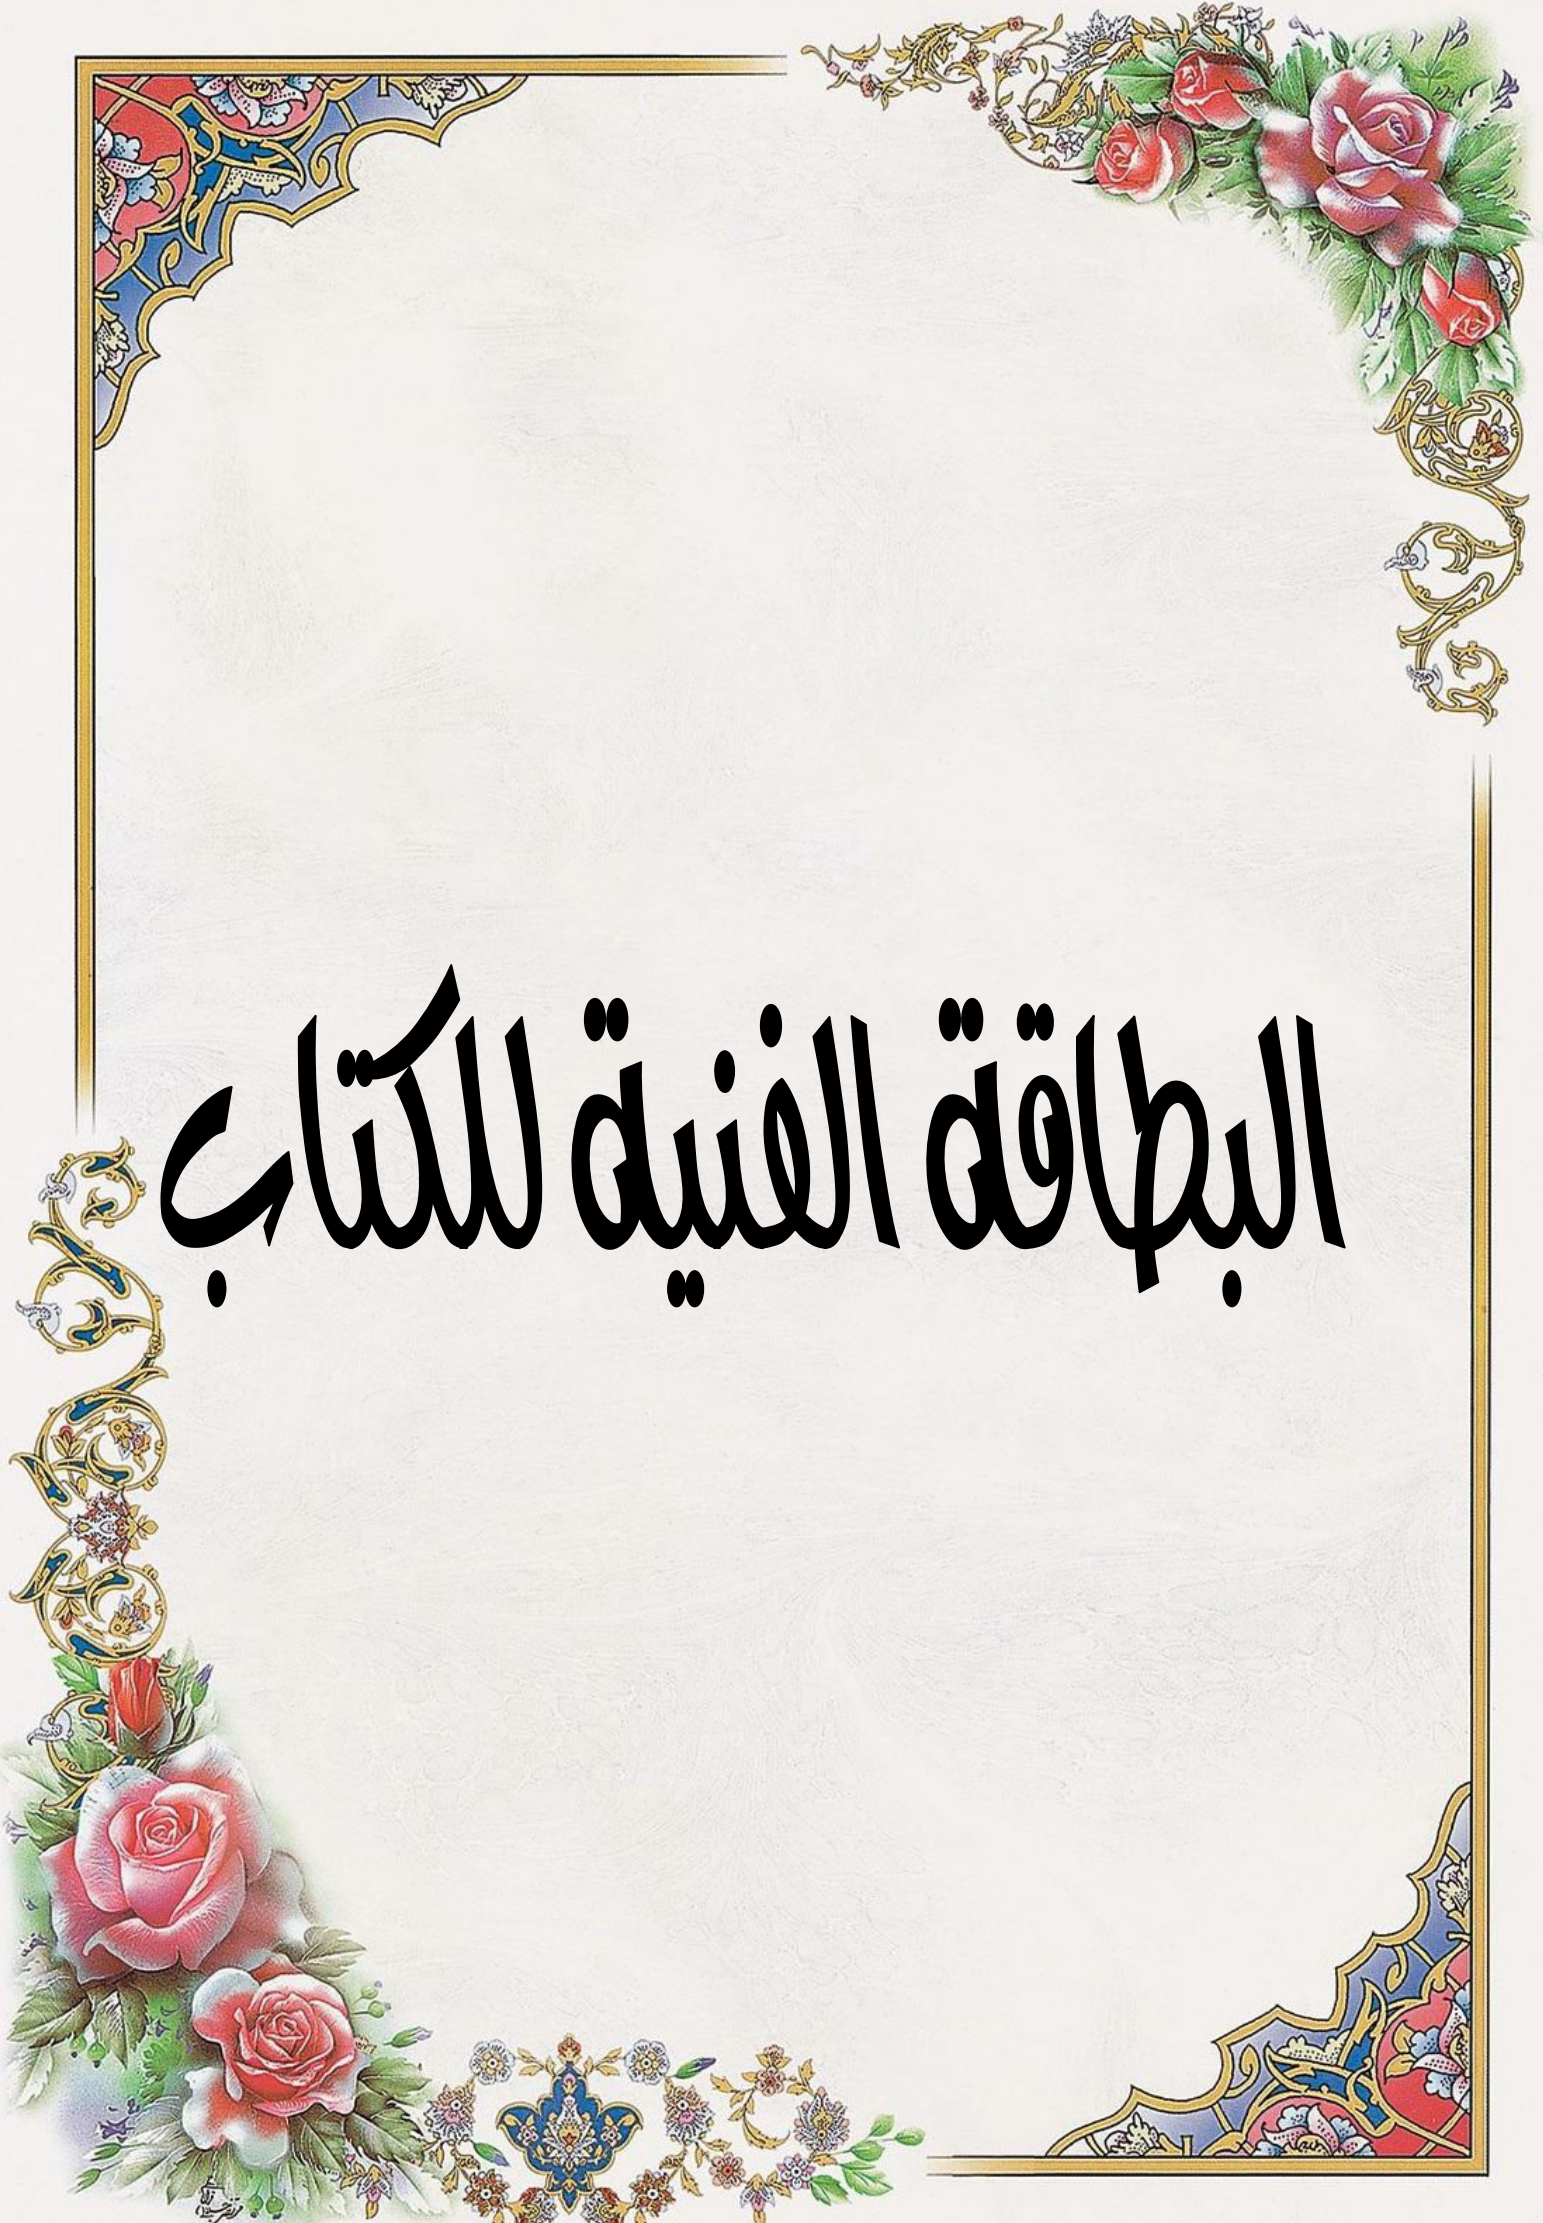 البطاقة الفنية للكتاب